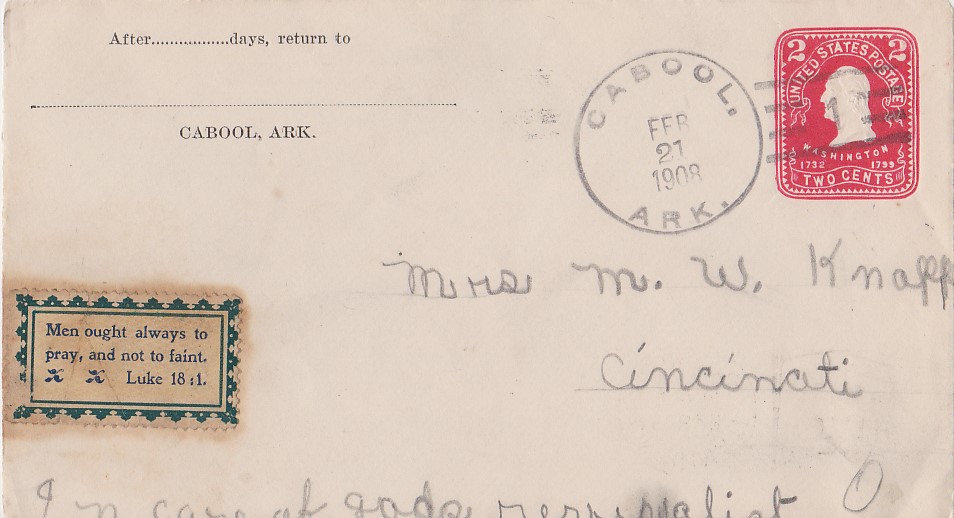 After.................days, return to
CABOOL, ARK.
CABOOL,
FEB
21
1908
ARK.
1
2 2
UNITED STATES POSTAGE
WASHINGTON
1732 1799
TWO CENTS
Mrs M. W. Knapp
Cincinati
Men ought always to
pray, and not to faint.
Luke 18:1.
In care of gods revivalist O